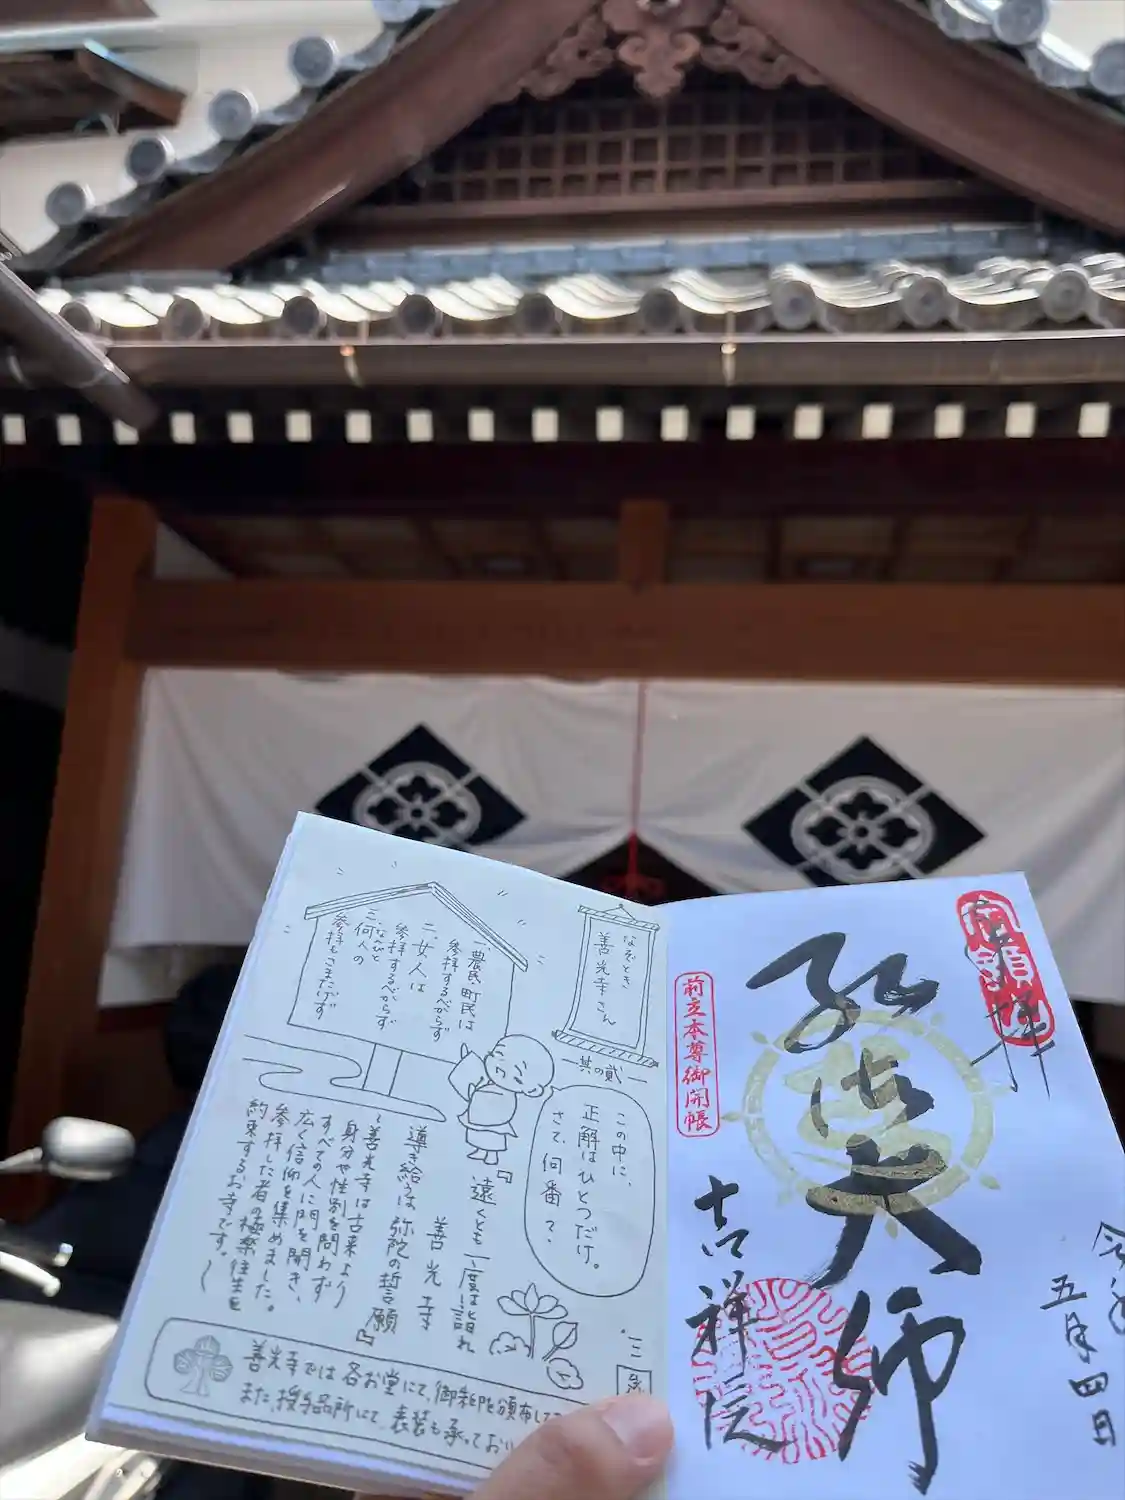 奉拝
前立本尊御開帳
弘法大師
吉祥院
五月四日
なぞとき
善光寺さん
其の貳
一、農民・町民は
参拝するべからず
二、女人は
参拝するべからず
三、何人の
なんびと
参拝もこまたげず
この中に、
正解はひとつだけ。
さて、何番?
『遠くとも一度は詣れ
善光寺
導き給うは弥陀の誓願』
~善光寺は古来より
身分や性別を問わず
すべての人に門を開き、
広く信仰を集めました。
参拝した者の極楽往生を
約束するお寺です。~
・三
善光寺では各お堂にて、御朱印を頒布して
また、授与品所にて、表装も承っており